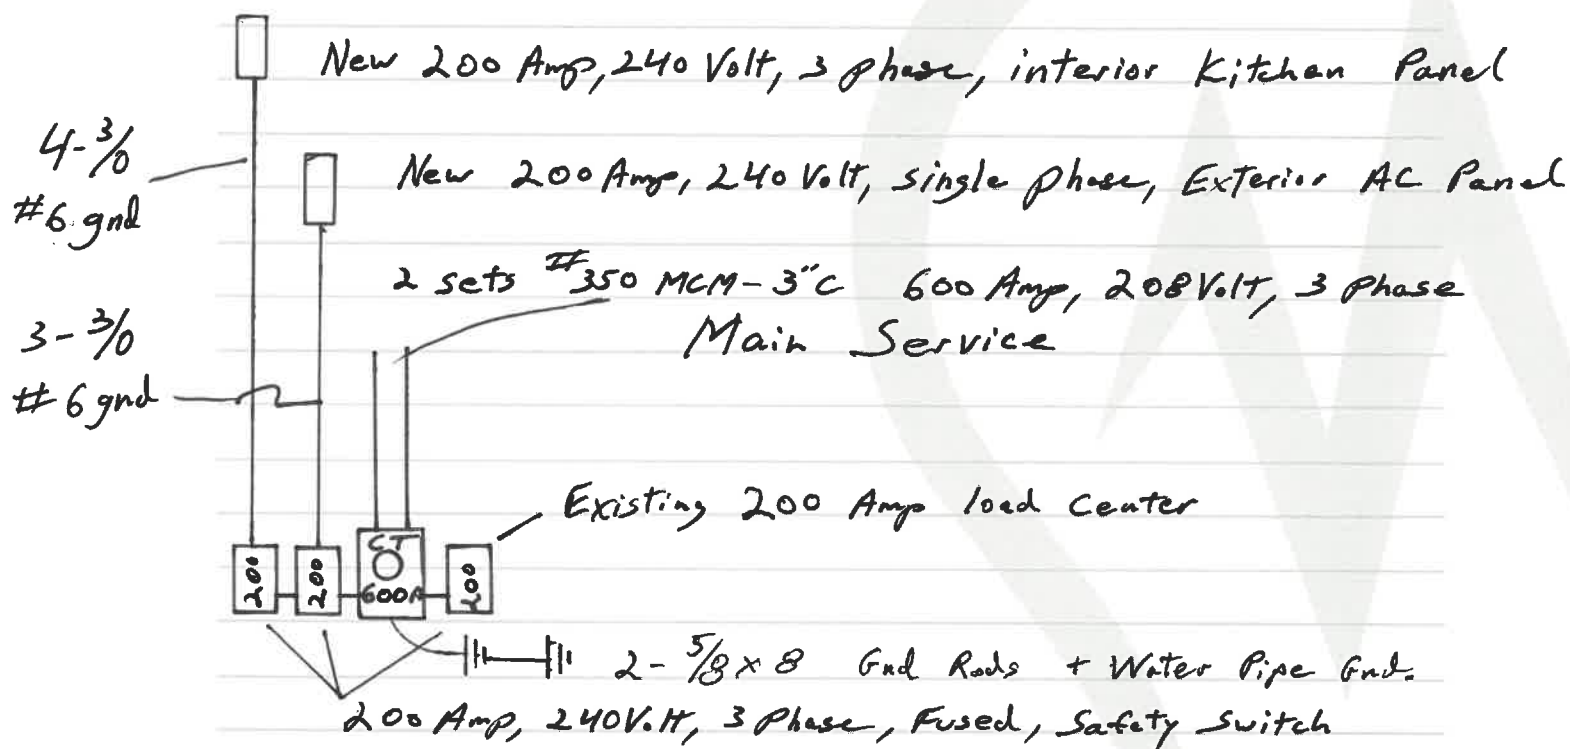 New 200 Amp, 240 Volt, 3 phase, interior Kitchen Panel
4-3/0
#6 gnd
New 200 Amp, 240 Volt, single phase, Exterior AC Panel
2 sets #350 MCM-3"C 600 Amp, 208 Volt, 3 Phase
Main Service
3-3/0
#6 gnd
Existing 200 Amp load Center
CT
200
200
600A
200
2-5/8x8 Gnd Rods + Water Pipe Gnd.
200 Amp, 240 Volt, 3 Phase, Fused, Safety Switch